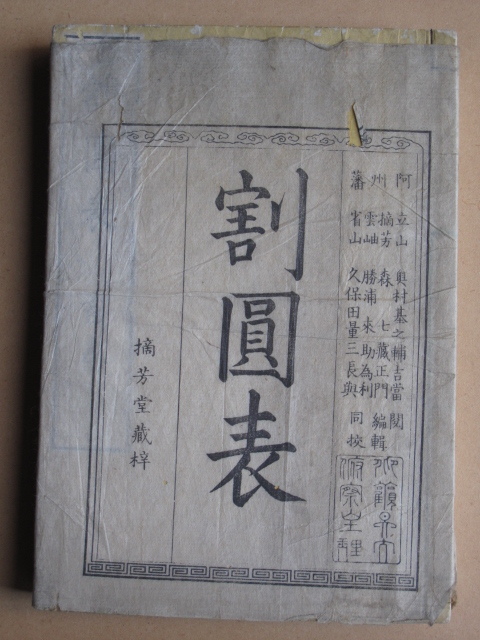 阿州藩
立山 奥村基之輔吉當 閲
摘芳 森 七藏正門 編輯
雲岫 勝浦 来助為利
省山 久保田量三長與 同挍
割圓表
摘芳堂藏梓